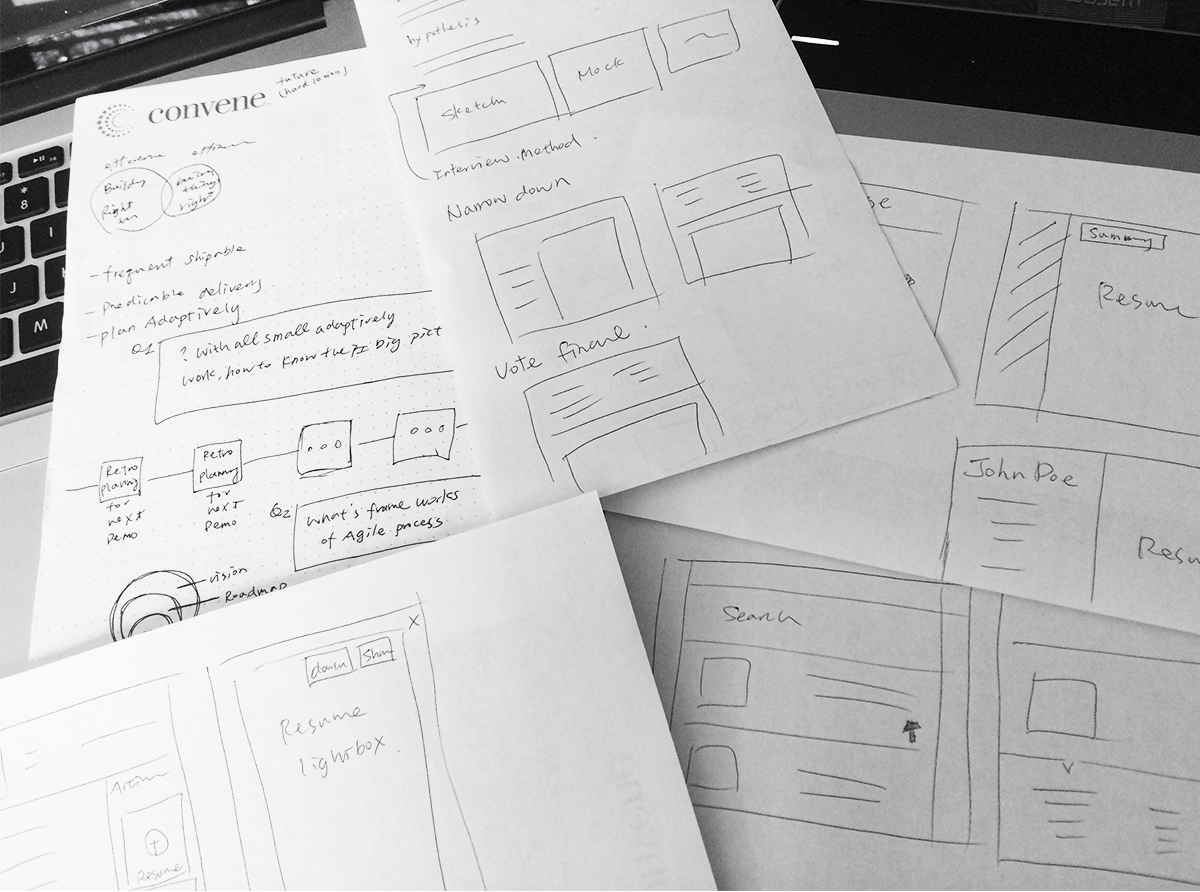 convene
future
Building
Right
right
- frequent shipable
- Predicable delivery
- plan Adaptively
Q1
? With all small adaptively
work, how to know the big pict
Retro
planning
for
next
Demo
Retro
planning
for
next
Demo
Q2
What's frame works
of Agile process
vision
Roadmap
hypothesis
Sketch
Mock
Interview Method.
Narrow down
Vote
Summary
Resume
John Doe
Resu
Search
X
down
Share
Resume
lightbox.
Resume
8
I
J
M